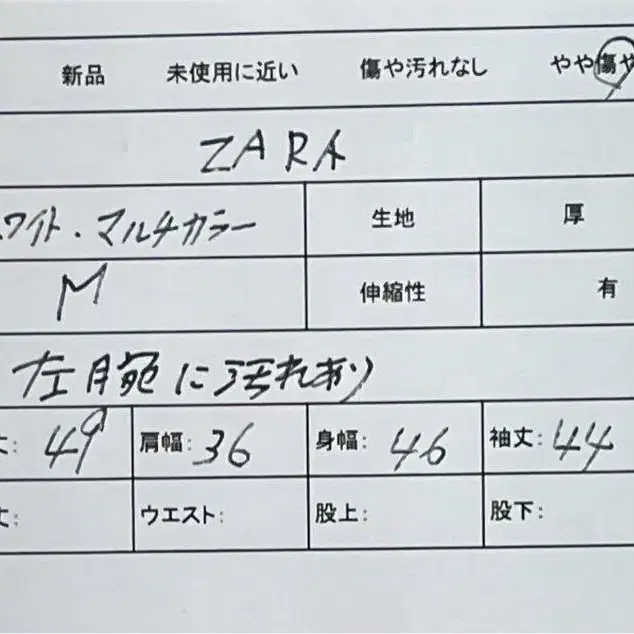 新品 未使用に近い 傷や汚れなし やや傷や
ZARA
ワイト・マルチカラー 生地 厚
M 伸縮性 有
左腕に汚れあり
丈: 49 肩幅: 36 身幅: 46 袖丈: 44
丈: ウエスト: 股上: 股下: